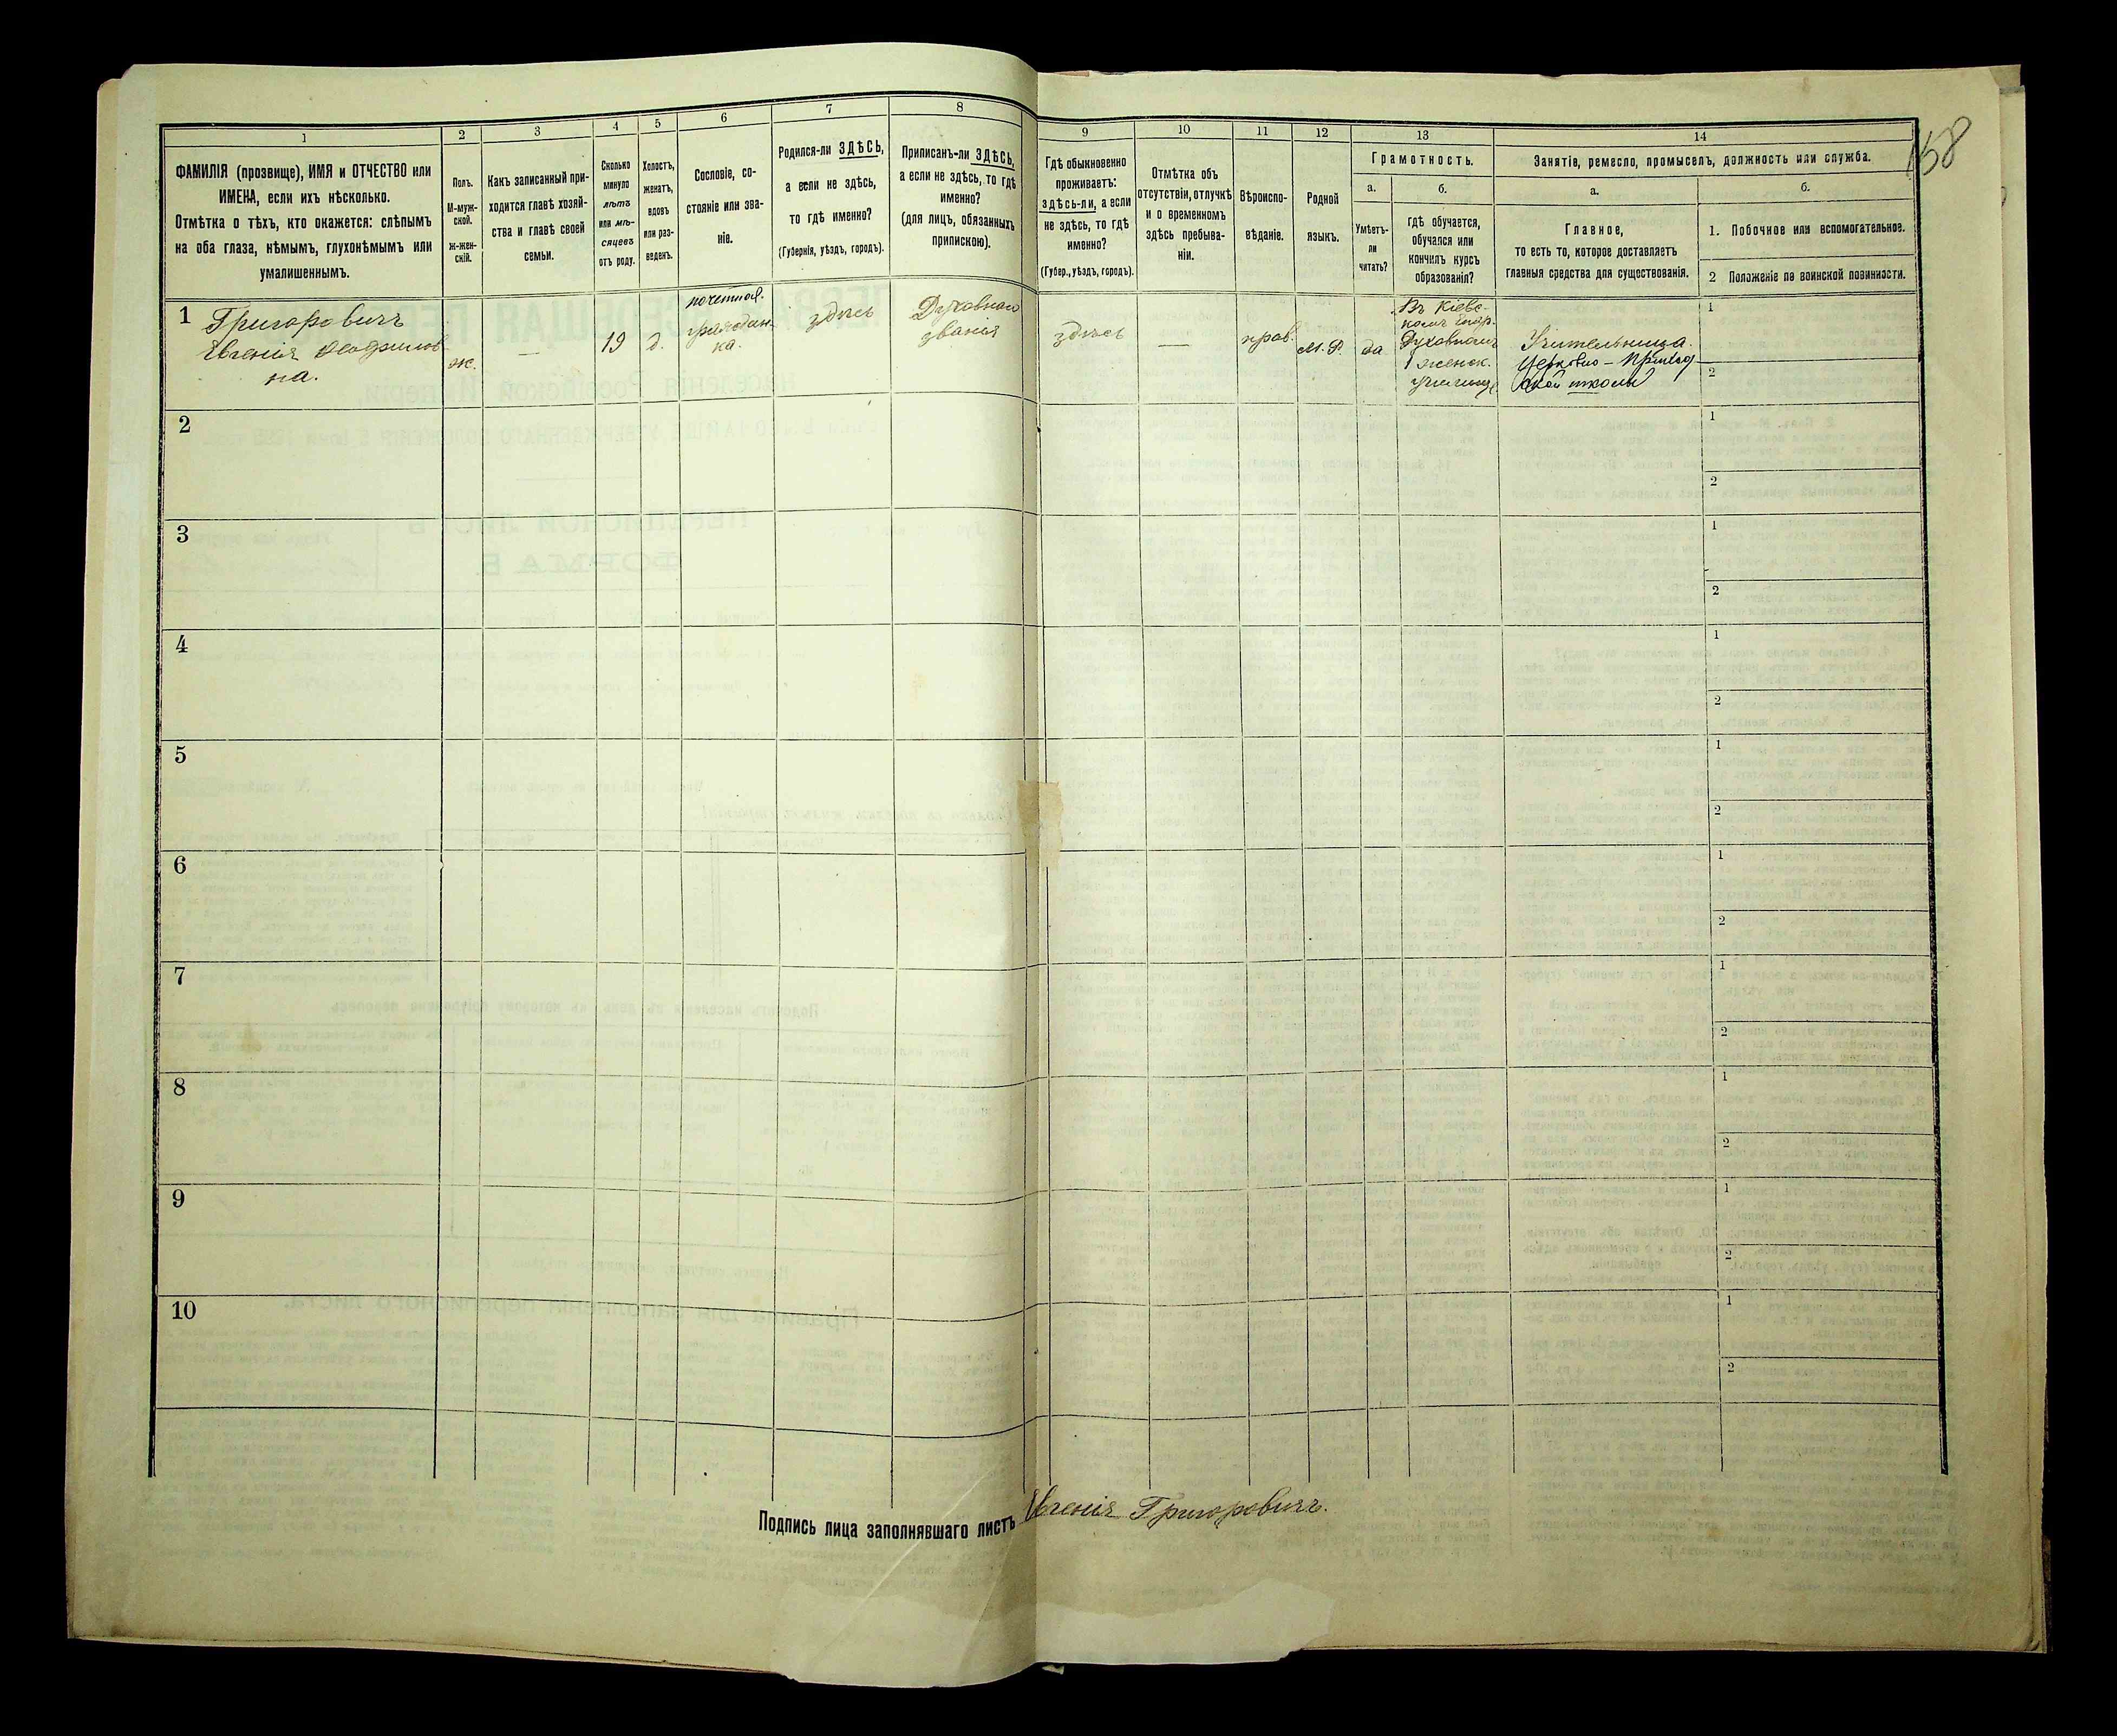 158
1
ФАМИЛІЯ (прозвище), ИМЯ и ОТЧЕСТВО или
ИМЕНА, если ихъ нѣсколько.
Отмѣтка о тѣхъ, кто окажется: слѣпымъ
на оба глаза, нѣмымъ, глухонѣмымъ или
умалишеннымъ.
2
Полъ.
М-муж-
ской.
ж-жен-
скій.
3
Какъ записанный при-
ходится главѣ хозяй-
ства и главѣ своей
семьи.
4
Сколько
минуло
лѣтъ
или мѣ-
сяцевъ
отъ роду.
5
Холостъ,
женатъ,
вдовъ
или раз-
веденъ.
6
Сословіе, со-
стояніе или зва-
ніе.
7
Родился-ли ЗДѢСЬ,
а если не здѣсь,
то гдѣ именно?
(Губернія, уѣздъ, городъ).
8
Приписанъ-ли ЗДѢСЬ,
а если не здѣсь, то гдѣ
именно?
(для лицъ, обязанныхъ
припискою).
9
Гдѣ обыкновенно
проживаетъ:
здѣсь-ли, а если
не здѣсь, то гдѣ
именно?
(Губер., уѣздъ, городъ).
10
Отмѣтка объ
отсутствіи, отлучкѣ
и о временномъ
здѣсь пребыва-
ніи.
11
Вѣроиспо-
вѣданіе.
12
Родной
языкъ.
13
Грамотность.
а.
Умѣетъ-
ли
читать?
б.
гдѣ обучается,
обучался или
кончилъ курсъ
образованія?
14
Занятіе, ремесло, промыселъ, должность или служба.
а.
Главное,
то есть то, которое доставляетъ
главныя средства для существованія.
б.
1. Побочное или вспомогательное.
2 Положеніе по воинской повинности.
1
Григоровичъ
Евгенія
на.
ж.
—
19
д.
почетная
граждан-
ка.
здѣсь
Духовнаго
званія
здѣсь
—
прав.
М. Р.
да
Въ Кіевс-
комъ Епар.
Духовномъ
женск.
училищѣ
Учительница
Церковно-Приход
ской школы
1
2
2
1
2
3
1
2
4
1
2
5
1
2
6
1
2
7
1
2
8
1
2
9
1
2
10
1
2
Подпись лица заполнявшаго листъ Евгенія Григоровичъ.